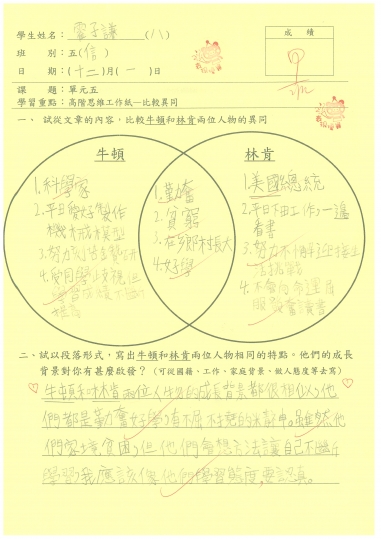 學生姓名：子謙（八）
成績
甲
班　　別：五（信）
日　　期：（十二）月（一）日
課　　題：單元五
學習重點：高階思維工作紙—比較異同
一、 試從文章的內容，比較牛頓和林肯兩位人物的異同
牛頓
林肯
1.科學家
2.平日愛好製作
機械模型
3.努力
4.受同學歧視但
1.勤奮
2.貧窮
3.在鄉村長大
4.好學
1.美國總統
2.平日下田工作，一邊
看書
3.努力不懈迎接生
活挑戰
4.不會向命運屈
服，奮讀書
二、試以段落形式，寫出牛頓和林肯兩位人物相同的特點。他們的成長
背景對你有甚麼啟發？（可從國籍、工作、家庭背景、做人態度等去寫）
牛頓和林肯兩位人生的成長背景都很相似，他
們都是勤奮好學，有不屈不的精神。雖然他
們家境貧困，但他們會想方法讓自己不斷
學習，我應該像他們學習態度，要認真。